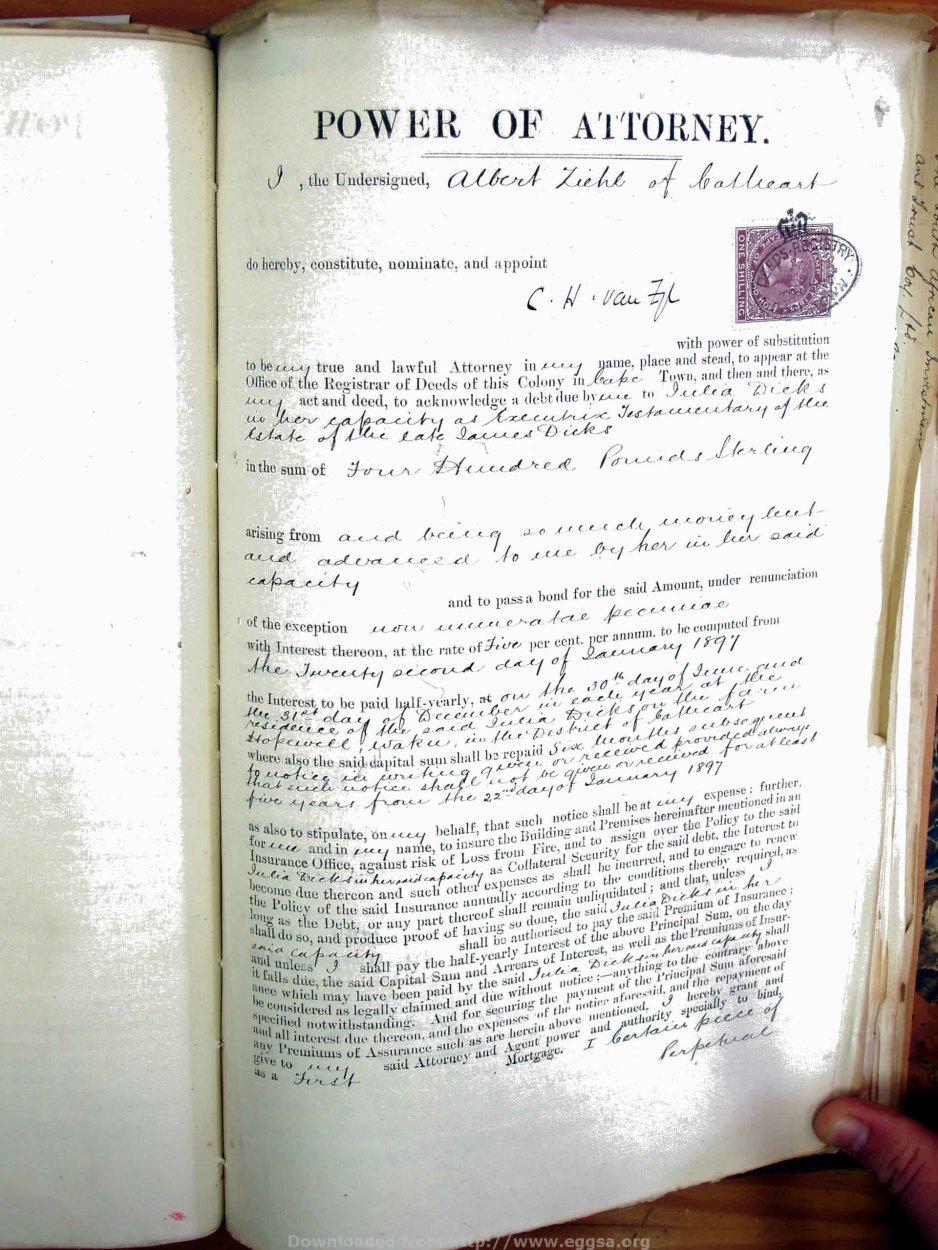 POWER OF ATTORNEY.
I, the Undersigned, Albert Ziehl of Cathcart
do hereby, constitute, nominate, and appoint
C. H. van Zyl
ONE SHILLING
DEEDS REGISTRY
with power of substitution
to be my true and lawful Attorney in my name, place and stead, to appear at the
Office of the Registrar of Deeds of this Colony in Cape Town, and then and there, as
my act and deed, to acknowledge a debt due by me to Julia Dicks
in her capacity as Executrix Testamentary of the
Estate of the late James Dicks
in the sum of Four Hundred Pounds Sterling
arising from and being so much money lent
and advanced to me by her in her said
capacity
and to pass a bond for the said Amount, under renunciation
of the exception non numeratae pecuniae
with Interest thereon, at the rate of Five per cent. per annum. to be computed from
the Twenty second day of January 1897
the Interest to be paid half-yearly, at on the 30th day of June and
the 31st day of December in each year at the
residence of the said Julia Dicks on the farm
Hopewell, Waku, in the District of Cathcart
where also the said capital sum shall be repaid Six Months subsequent
to notice in writing given or received provided always
that such notice shall not be given or received for at least
five years from the 22nd day of January 1897
as also to stipulate, on my behalf, that such notice shall be at my expense; further.
for me and in my name, to insure the Building and Premises hereinafter mentioned in an
Insurance Office, against risk of Loss from Fire, and to assign over the Policy to the said
Julia Dicks in her said capacity as Collateral Security for the said debt, the Interest to
become due thereon and such other expenses as shall be incurred, and to engage to renew
the Policy of the said Insurance annually according to the conditions thereby required, as
long as the Debt, or any part thereof shall remain unliquidated; and that, unless I
shall do so, and produce proof of having so done, the said Julia Dicks in her
said capacity shall be authorised to pay the said Premium of Insurance;
and unless I shall pay the half-yearly Interest of the above Principal Sum, on the day
it falls due, the said Capital Sum and Arrears of Interest, as well as the Premiums of Insur-
ance which may have been paid by the said Julia Dicks in her said capacity shall
be considered as legally claimed and due without notice;—anything to the contrary above
specified notwithstanding. And for securing the payment of the Principal Sum aforesaid
and all interest due thereon, and the expenses of the notice aforesaid, and the repayment of
any Premiums of Assurance such as are herein above mentioned, I hereby grant and
give to my said Attorney and Agent power and authority specially to bind,
as a First Mortgage. I Certain piece of
Perpetual
South African Investment
and Trust Coy. Ltd.
Downloaded from http://www.eggsa.org